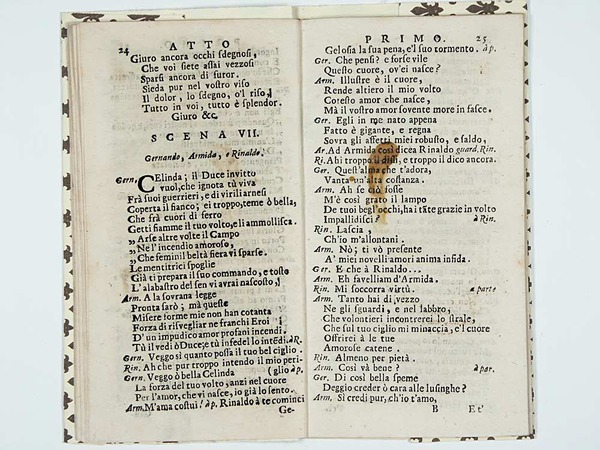 24 ATTO
Giuro ancora occhi sdegnosi,
Che voi siete assai vezzosi
Sparsi ancor di furor.
Sieda pur nel vostro viso
Il dolor, lo sdegno, o'l riso,
Tutto in voi, tutto è splendor.
Giuro &c.
SCENA VII.
Gernando, Armida, e Rinaldo.
Gern. CElinda; il Duce invitto
vuol, che ignota tù viva
Frà suoi guerrieri, e di virili arnesi
Coperta il fianco; ei troppo, teme ò bella,
Che frà cuori di ferro
Getti fiamme il tuo volto, e li ammollisca.
„ Arse altre volte il Campo
„ Ne l'incendio amoroso,
„ Che feminil beltà fiera vi sparse.
Le mentitrici spoglie
Già ti prepara il suo commando, e tosto
L'alabastro del sen vi avrai nascosto,
Arm. A la sovrana legge
Pronta sarò; mà queste
Misere forme mie non han cotanta
Forza di risvegliar ne franchi Eroi
D'un impudico amor profani incendi.
Tù il vedi ò Duce, e tù infedel lo intedi. à R.
Gern. Veggo sì quanto possa il tuo bel ciglio.
Rin. Ah che pur troppo intendo il mio peri-
Gern. Veggo ò bella Celinda (glio àp.
La forza del tuo volto, anzi nel cuore
Per l'amor, che vi nasce, io già lo sento.
Arm. M'ama costui! àp. Rinaldo à te cominci
Ge-
PRIMO. 25
Gelosia la sua pena, e'l suo tormento. àp.
Ger. Che pensi? e forse vile
Questo cuore, ov'ei nasce?
Arm. Illustre è il cuore,
Rende altiero il mio volto
Cotesto amor che nasce,
Mà il vostro amor sovente more in fasce.
Ger. Egli in me nato appena
Fatto è gigante, e regna
Sovra gli affetti miei robusto, e saldo,
Ar. Ad Armida così dicea Rinaldo guard. Rin.
Ri. Ahi troppo il disse, e troppo il dico ancora.
Ger. Quest'alma che t'adora,
Vanta un'alta costanza.
Arm. Ah se ciò fosse
M'è così grato il lampo
De tuoi begl'occhi, hai tãte grazie in volto
Impallidisci? à Rin.
Rin. Lascia,
Ch'io m'allontani.
Arm. Nò; ti vò presente
A' miei novelli amori anima infida.
Ger. E che à Rinaldo...
Arm. Eh favelliam d'Armida.
Rin. Mi soccorra virtù. à parte
Arm. Tanto hai di vezzo
Ne gli sguardi, e nel labbro,
Che volontieri incontrerei lo strale,
Che sul tuo ciglio mi minaccia, e'l cuore
Offrirei à le tue
Amorose catene.
Rin. Almeno per pietà.
Arm. Così và bene? à par.
Ger. Di così bella speme
Deggio creder ò cara alle lusinghe?
Arm. Sì credi pur, ch'io t'amo,
B Et'